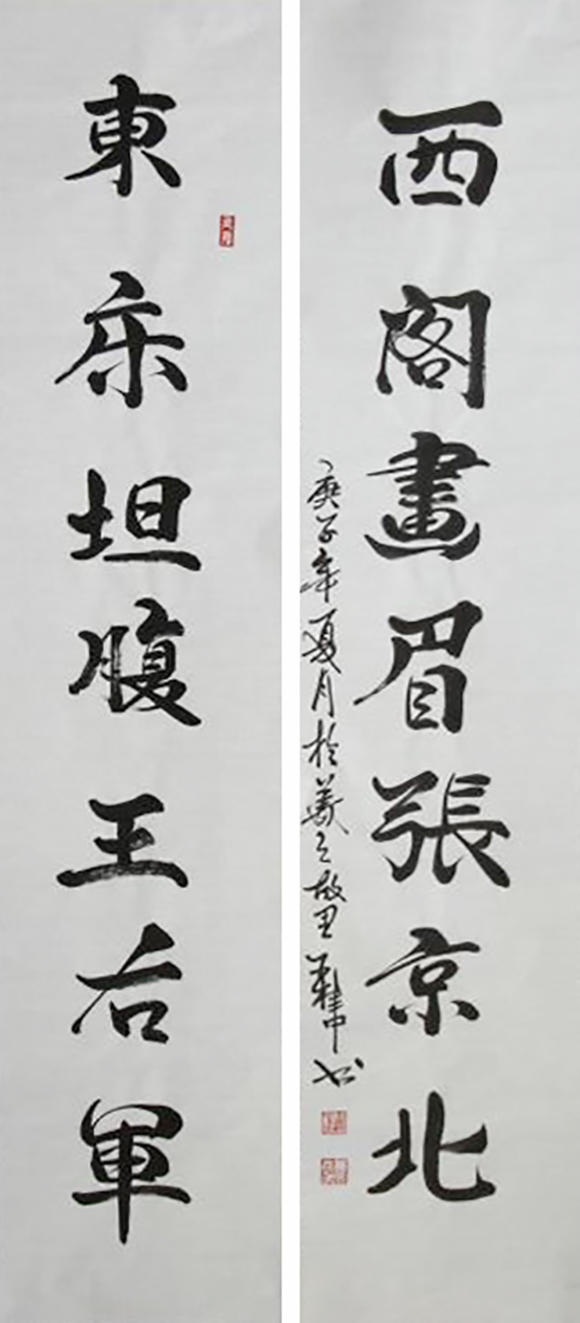 東床坦腹王右軍
西閣畫眉張京北
庚子年夏月於羲之故里